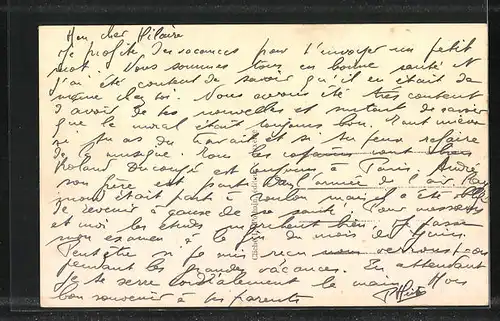 Mon cher Hilaire
Je profite des vacances pour t'envoyer un petit
mot. Nous sommes tous en bonne santé et
j'ai été content de savoir qu'il en était de
même chez toi. Nous avons été très content
d'avoir de tes nouvelles et surtout de savoir
que le moral était toujours bon. Tant mieux
si tu as du travail et si tu peux refaire
de la musique. Tous les copains sont
Roland est toujours à Paris André
son frère est parti dans l'armée de l'air
quand était parti à Toulon mais il a été obligé
de revenir à cause de sa santé. Pour
et moi les études marchent bien et passe
mon examen à la fin du mois de Juin.
Peut être si je suis reçu nous verrons-nous
pendant les grandes vacances. En attendant
je te serre cordialement la main. Mon
bon souvenir à tes parents